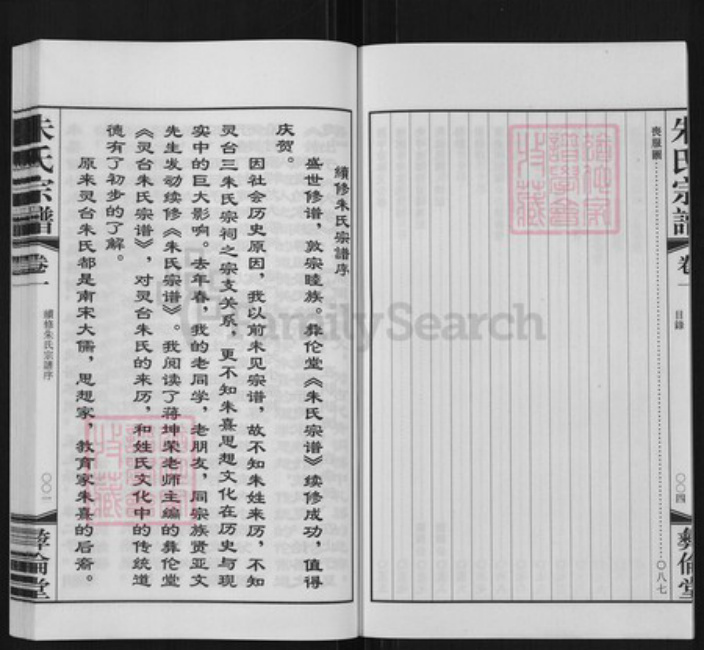 朱氏宗譜
卷一
目錄
〇〇四
彝倫堂
喪服圖……〇八七
續修朱氏宗譜序
盛世修谱，敦宗睦族。彝伦堂《朱氏宗谱》续修成功，值得
庆贺。
因社会历史原因，我以前未见宗谱，故不知朱姓来历，不知
灵台三朱氏宗祠之宗支关系，更不知朱熹思想文化在历史与现
实中的巨大影响。去年春，我的老同学，老朋友，同宗族贤亚文
先生发动续修《朱氏宗谱》。我阅读了蒋坤荣老师主编的彝伦堂
《灵台朱氏宗谱》，对灵台朱氏的来历，和姓氏文化中的传统道
德有了初步的了解。
原来灵台朱氏都是南宋大儒，思想家，教育家朱熹的后裔。
朱氏宗譜
卷一
續修朱氏宗譜序
〇〇一
彝倫堂
FamilySearch